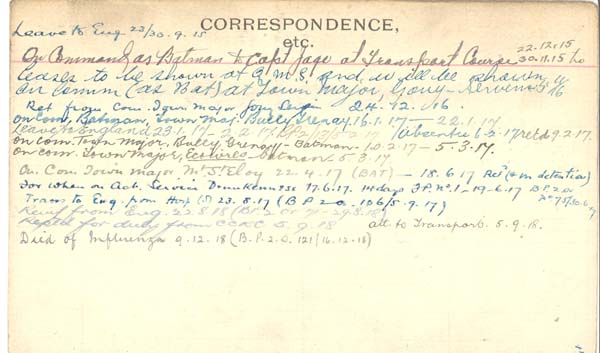 CORRESPONDENCE,
etc.
Leave to Eng. 23/30.9.15
On Command as Batman to Capt Jago at Transport Course 22.12.15
30.11.15 to
Ceases to be shown at C.M.S. and will be shown
On Comm (as Bat) at Town Major, Gouy-Servins
Ret from Com. Town Major Gouy Servins 24.12.16.
on Com, Batman, Town Maj. Bully Grenay, 16.1.17 — 22.1.17
Leave to England 23.1.17 - 2.2.17. Absentee 6.2.17 retd 9.2.17.
on Com. Town Major, Bully Grenay - Batman - 10.2.17 — 5.3.17.
on Com. Town Major, Batman 5.3.17
On Com Town Major Mt St Eloy 22.4.17 (BAT) — 18.6.17 Retd (in detention)
For when on Act. Service Drunkenness 17.6.17. 14 days F.P. No. 1 - 19-6-17 B.P.2.0.
No 75/30.6.17
Trans to Eng. from Hosp (S) 23.8.17 (B P 2 0. 106/5.9.17)
from Eng. 22.8.18 29.8.18)
for duty from CCRC 5.9.18 att. to Transport. 5.9.18.
Died of Influenza 9.12.18 (B.P.2.0. 121/16.12.18)